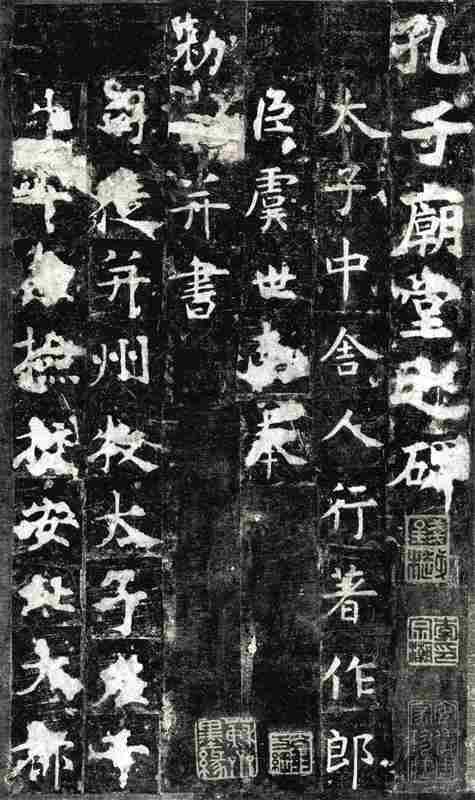 孔子廟堂之碑
太子中舍人行著作郎
臣虞世南奉
勑并書
司徒并州牧太子左千
牛檢校安北大都